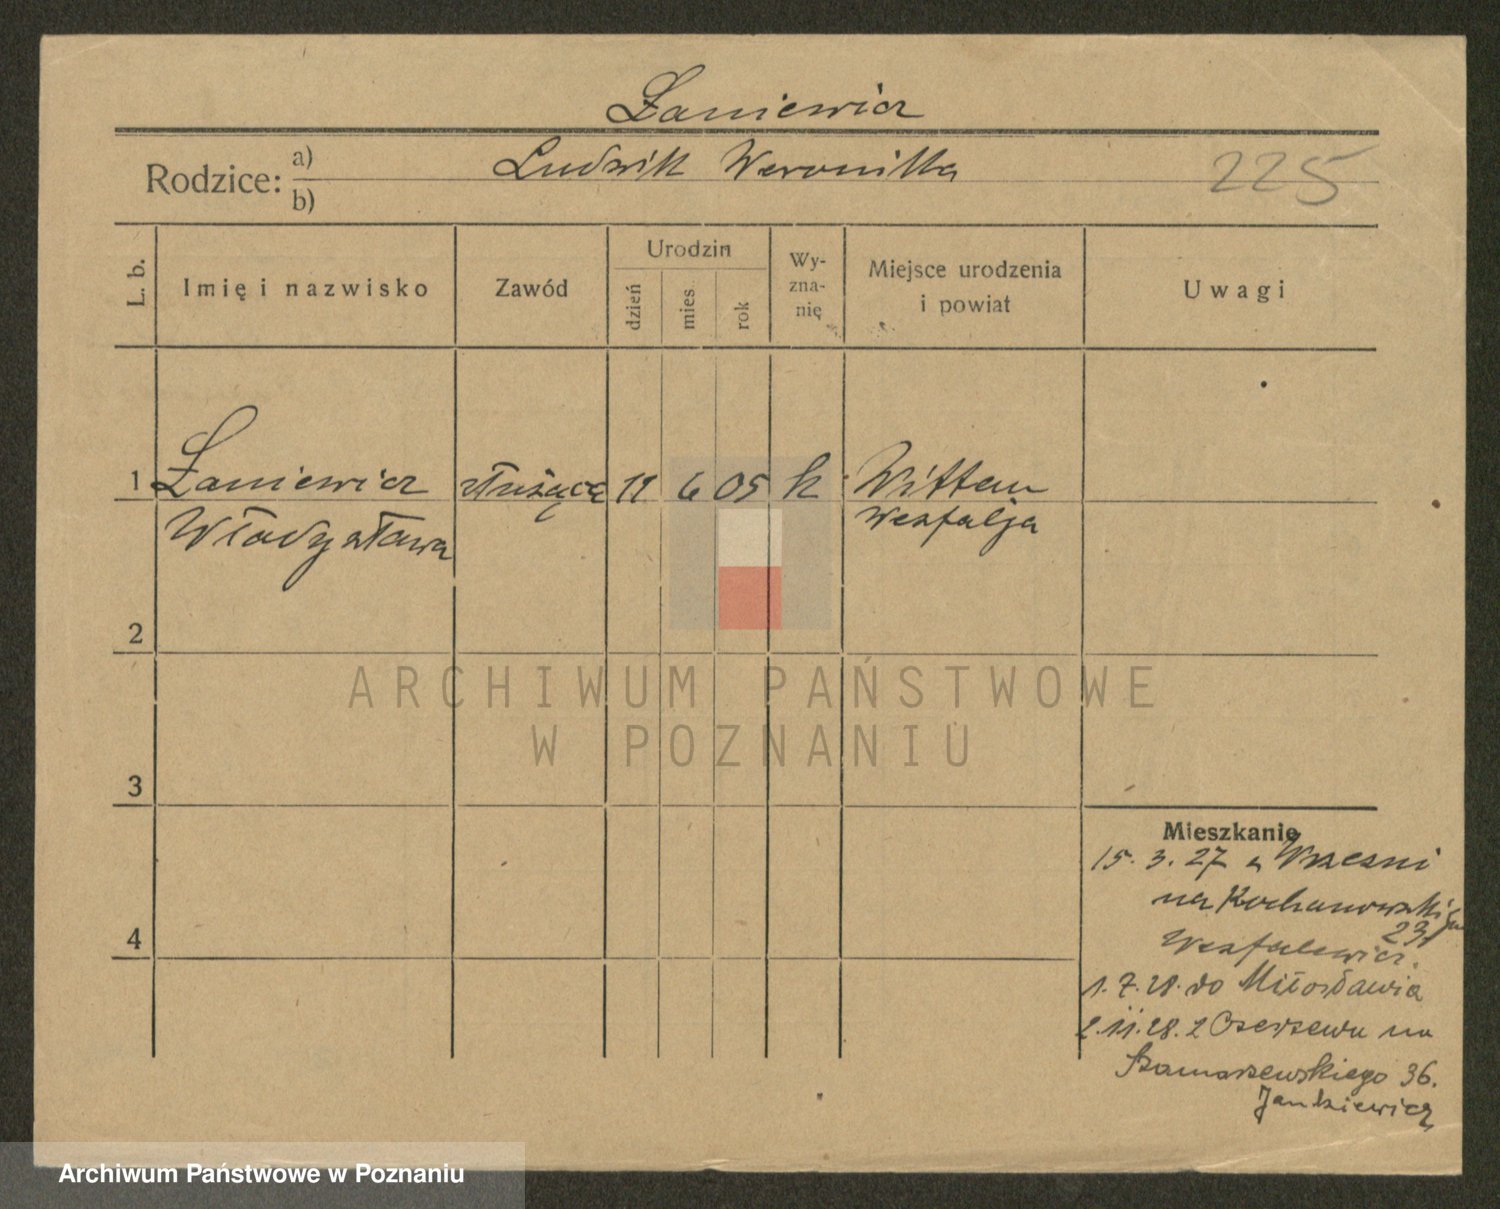 Łaniewicz
Rodzice: a) Ludwik Weronika
b)
225
L. b.
Imię i nazwisko
Zawód
Urodzin
dzień
mies.
rok
Wy-
zna-
nię
Miejsce urodzenia
i powiat
Uwagi
1 Łaniewicz służąca 11 6 05 k Witten
Władysława Wesfalja
2
3
4
ARCHIWUM PAŃSTWOWE
W POZNANIU
Mieszkanie
15. 3. 27 z Wrześni
na Kochanowskiego
23
Wesfalewicz.
1. 7. 28. do Miłosławia
2. 11. 28. z Czerzewa na
Szamarzewskiego 36.
Jankiewicz
Archiwum Państwowe w Poznaniu